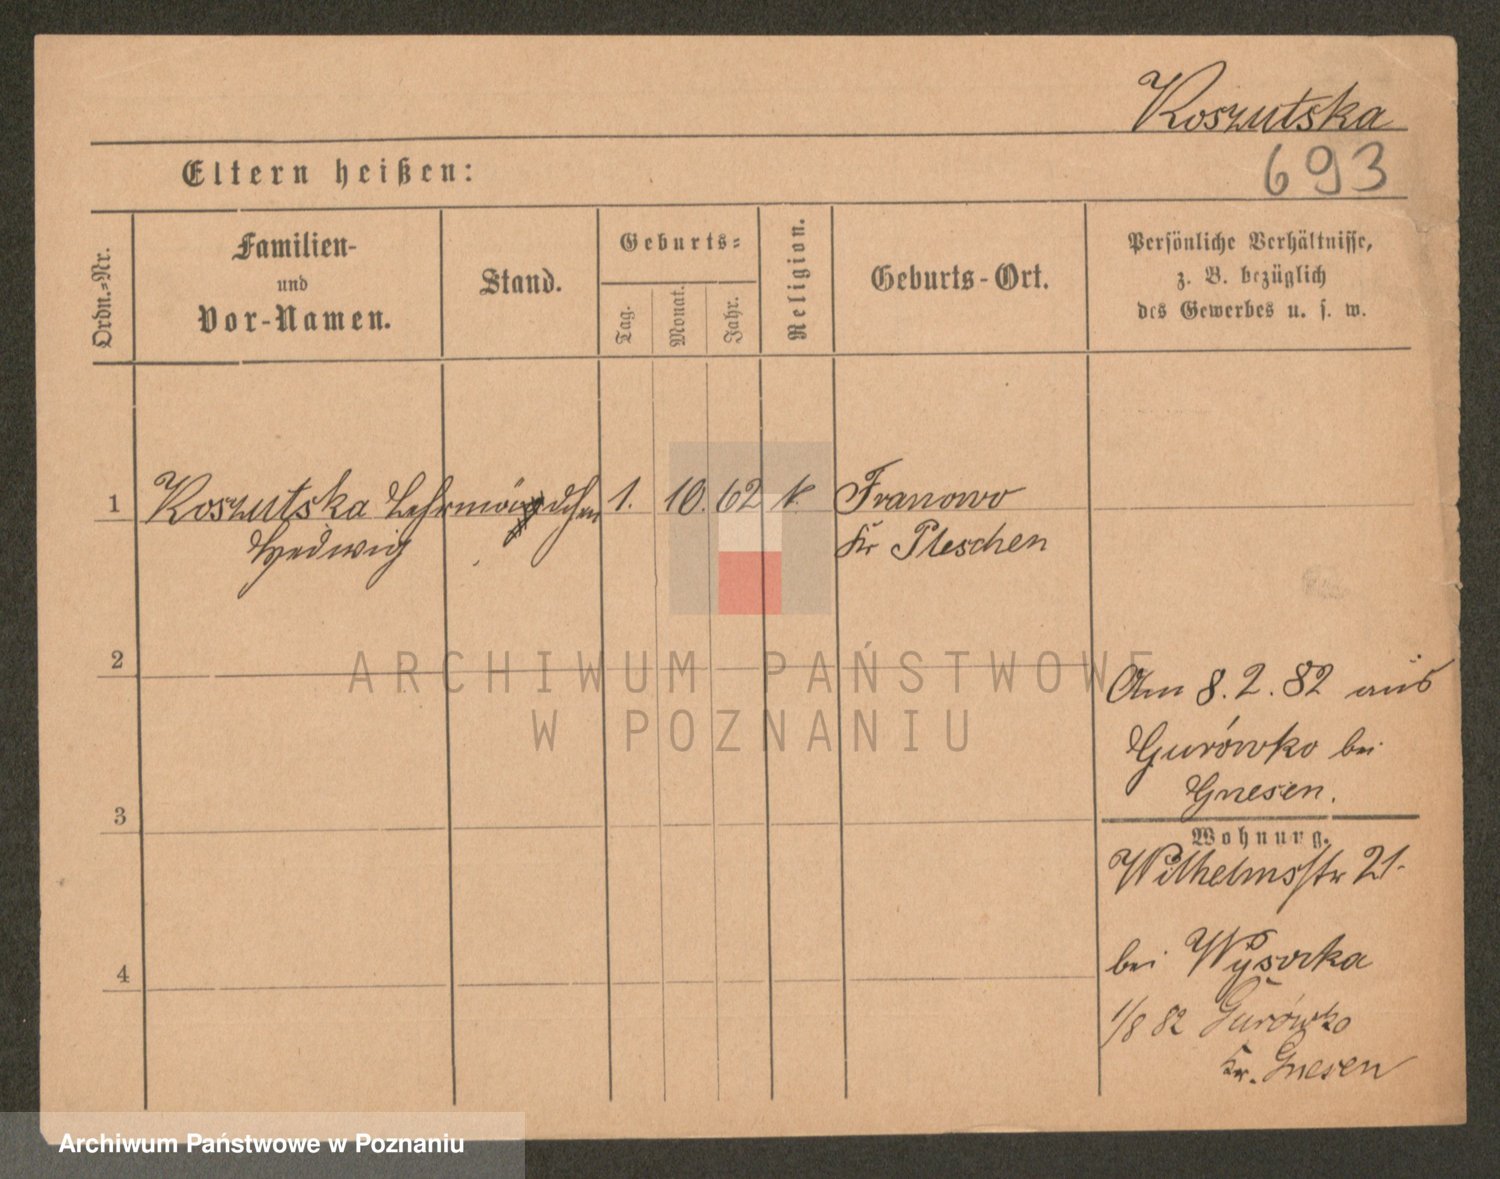 Koszutska
693
Eltern heißen:
Ordn.-Nr.
Familien-
und
Vor-Namen.
Stand.
Geburts-
Tag.
Monat.
Jahr.
Religion.
Geburts-Ort.
Persönliche Verhältnisse,
z. B. bezüglich
des Gewerbes u. s. w.
1 Koszutska Lehrmädchen 1. 10. 62 k. Franowo
Hedwig Kr Pleschen
2
ARCHIWUM PAŃSTWOWE
W POZNANIU
Am 8.2.82 aus
Gurówko bei
Gnesen.
3
Wohnung.
Wilhelmsstr 21.
bei Wysocka
4
1/8 82 Gurówko
Kr. Gnesen
Archiwum Państwowe w Poznaniu